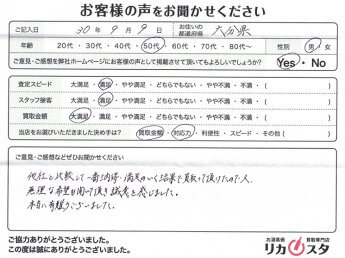 お客様の声をお聞かせください
ご記入日 30年 9月 9日 お住いの都道府県 大分県
年齢 20代・30代・40代・50代・60代・70代・80代～ 性別 男・女
ご意見・ご感想を弊社ホームページにお客様の声として掲載させて頂いてもよろしいでしょうか? Yes・No
査定スピード 大満足・満足・やや満足・どちらでもない・やや不満・不満・( )
スタッフ接客 大満足・満足・やや満足・どちらでもない・やや不満・不満・( )
買取金額 大満足・満足・やや満足・どちらでもない・やや不満・不満・( )
当店をお選びいただきました決め手は? 買取金額・対応力・利便性・スピード・その他( )
ご意見・ご感想などぜひお聞かせください
他社と比較して一番納得・満足のいく結果で買取って頂けたので
無理な希望を聞いて頂き誠意を感じました。
本当に有難うございました。
ご協力ありがとうございました。
この度は誠にありがとうございました。
お酒高価買取専門店
リカスタ